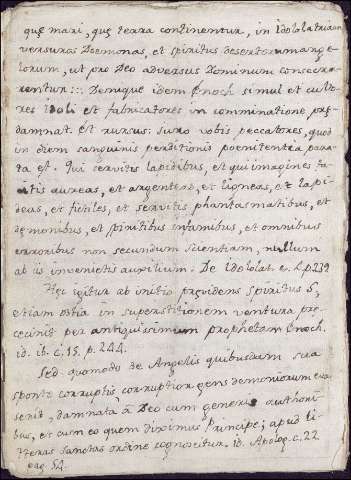 quę mari, quę terra continentur, in Idololatriam
versuros Dæmonas, et spiritus desertorum ange-
lorum, ut pro Deo adversus Dominum consecra-
rentur::: Denique idem Enoch simul et culto-
res idoli et fabricatores in comminatione pre-
damnat. Et rursus: Iuro vobis, peccatores, quod
in diem sanguinis perditionis poenitentia para-
ta est. Qui servitis lapidibus, et qui imagines fa-
citis aureas, et argenteas, et ligneas, et lapi-
deas, et fictiles, et servitis phantasmatibus, et
dęmonibus, et spiritibus infamibus, et omnibus
erroribus non secundum scientiam, nullum
ab iis invenietis auxilium. De Idololat. c. 4. p. 239
Hęc igitur ab initio pręvidens Spiritus S,
etiam ostia in superstitionem ventura prę-
cecinit per antiquissimum prophetam Enoch.
id. ib. c. 15. p. 244.
Sed quomodo de Angelis quibusdam sua
sponte corruptis corruptior gens dęmoniorum eva-
serit, damnata à Deo cum generis authori-
bus, et cum eo quem diximus Principe; apud li-
tteras sanctas ordine cognoscitur. id. Apolog. c. 22
pag. 54.